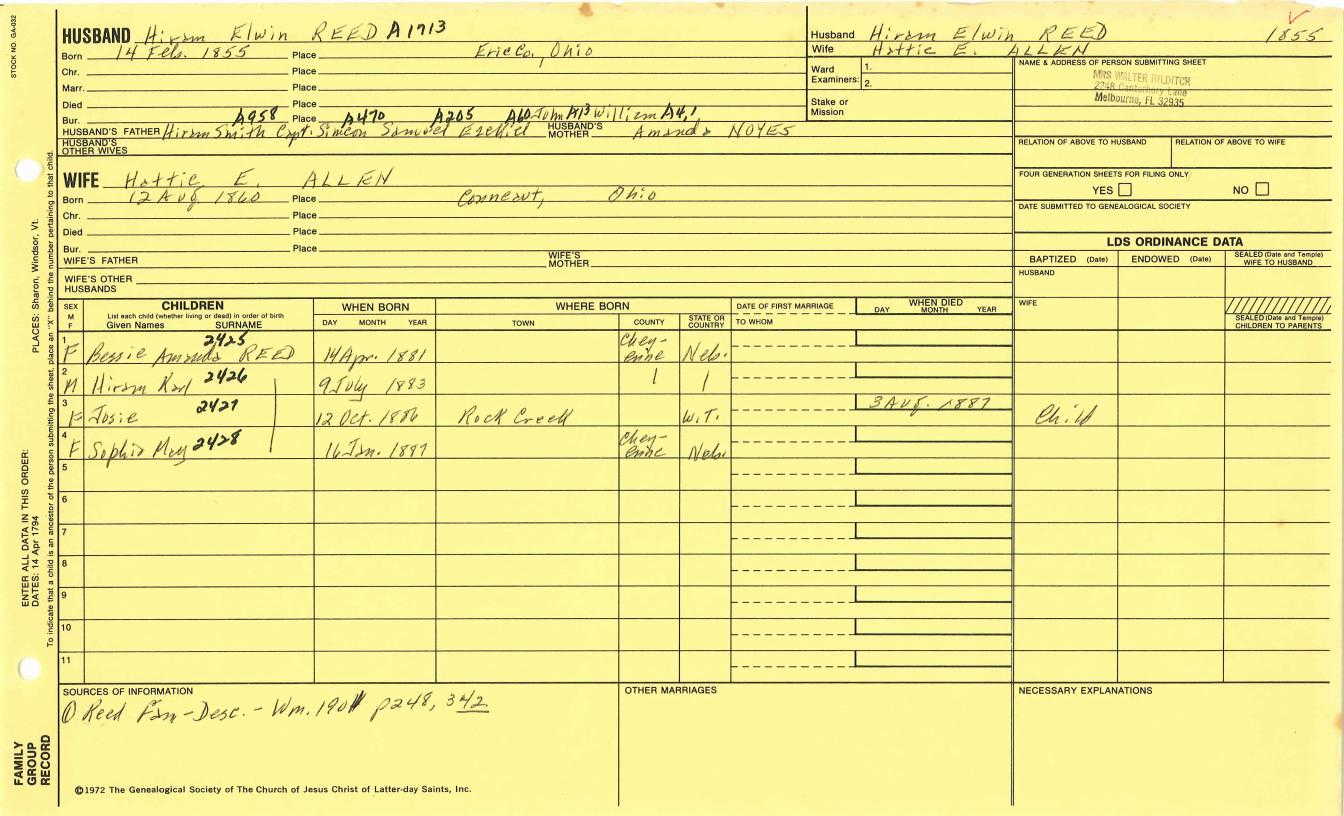 STOCK NO. GA-032
HUSBAND Hiram Elwin REED A1713
Born 14 Feb. 1855 Place Erie Co., Ohio
Chr. Place
Marr. Place
Died Place
Bur. Place
A958 A470 A205 A60 John A13 William A4,1
HUSBAND'S FATHER Hiram Smith Capt. Simeon Samuel Ezekiel HUSBAND'S MOTHER Amanda NOYES
HUSBAND'S OTHER WIVES
WIFE Hattie E. ALLEN
Born 12 Aug 1860 Place Conneaut, Ohio
Chr. Place
Died Place
Bur. Place
WIFE'S FATHER WIFE'S MOTHER
WIFE'S OTHER HUSBANDS
Husband Hiram Elwin REED 1855
Wife Hattie E. ALLEN
Ward Examiners: 1.
2.
Stake or Mission
NAME & ADDRESS OF PERSON SUBMITTING SHEET
MRS WALTER HILDITCH
2248 Canterbury Lane
Melbourne, FL 32935
RELATION OF ABOVE TO HUSBAND RELATION OF ABOVE TO WIFE
FOUR GENERATION SHEETS FOR FILING ONLY
YES NO
DATE SUBMITTED TO GENEALOGICAL SOCIETY
LDS ORDINANCE DATA
BAPTIZED (Date) ENDOWED (Date) SEALED (Date and Temple) WIFE TO HUSBAND
HUSBAND
WIFE
SEALED (Date and Temple) CHILDREN TO PARENTS
SEX M F CHILDREN WHEN BORN WHERE BORN DATE OF FIRST MARRIAGE WHEN DIED
List each child (whether living or dead) in order of birth
Given Names SURNAME DAY MONTH YEAR TOWN COUNTY STATE OR COUNTRY TO WHOM DAY MONTH YEAR
1 F Bessie Amanda REED 2425 14 Apr. 1881 Chey-enne Neb.
2 M Hiram Karl 2426 9 July 1883
3 F Josie 2427 12 Oct. 1886 Rock Creek W.T. 3 Aug. 1887 Child
4 F Sophia May 2428 16 Jan. 1887 Chey-enne Neb.
5
6
7
8
9
10
11
SOURCES OF INFORMATION
① Reed Fam-Desc. - Wm. 1901 p248, 342
OTHER MARRIAGES
NECESSARY EXPLANATIONS
©1972 The Genealogical Society of The Church of Jesus Christ of Latter-day Saints, Inc.
FAMILY GROUP RECORD
ENTER ALL DATA IN THIS ORDER:
DATES: 14 Apr 1794
PLACES: Sharon, Windsor, Vt.
To indicate that a child is an ancestor of the person submitting the sheet, place an "X" behind the number pertaining to that child.